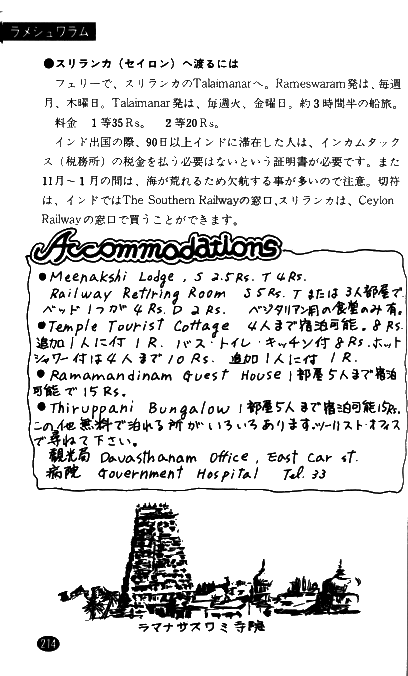 ラメシュワラム
●スリランカ（セイロン）へ渡るには
フェリーで、スリランカのTalaimanarへ。Rameswaram発は、毎週
月、木曜日。Talaimanar発は、毎週火、金曜日。約3時間半の船旅。
料金 1等35Rs。 2等20Rs。
インド出国の際、90日以上インドに滞在した人は、インカムタック
ス（税務所）の税金を払う必要はないという証明書が必要です。また
11月～1月の間は、海が荒れるため欠航する事が多いので注意。切符
は、インドではThe Southern Railwayの窓口、スリランカは、Ceylon
Railwayの窓口で買うことができます。
Accommodations
●Meenakshi Lodge, S 2.5Rs. T 4Rs.
Railway Retiring Room S 5Rs. T または 3人部屋で
ベッド1つが4Rs. D 2Rs. ベジタリアン用の食堂のみ有。
●Temple Tourist Cottage 4人まで宿泊可能。8Rs.
追加1人に付 1R. バス・トイレ・キッチン付8Rs.ホット
シャワー付は4人まで10Rs. 追加1人に付 1R.
●Ramamandinam Guest House 1部屋5人まで宿泊
可能で15Rs.
●Thiruppani Bungalow 1部屋5人まで宿泊可能15Rs.
この他無料で泊れる所がいろいろあります。ツーリスト・オフィス
で尋ねて下さい。
観光局 Davasthanam Office, East Car st.
病院 Government Hospital Tel. 33
ラマナサスワミ寺院
214